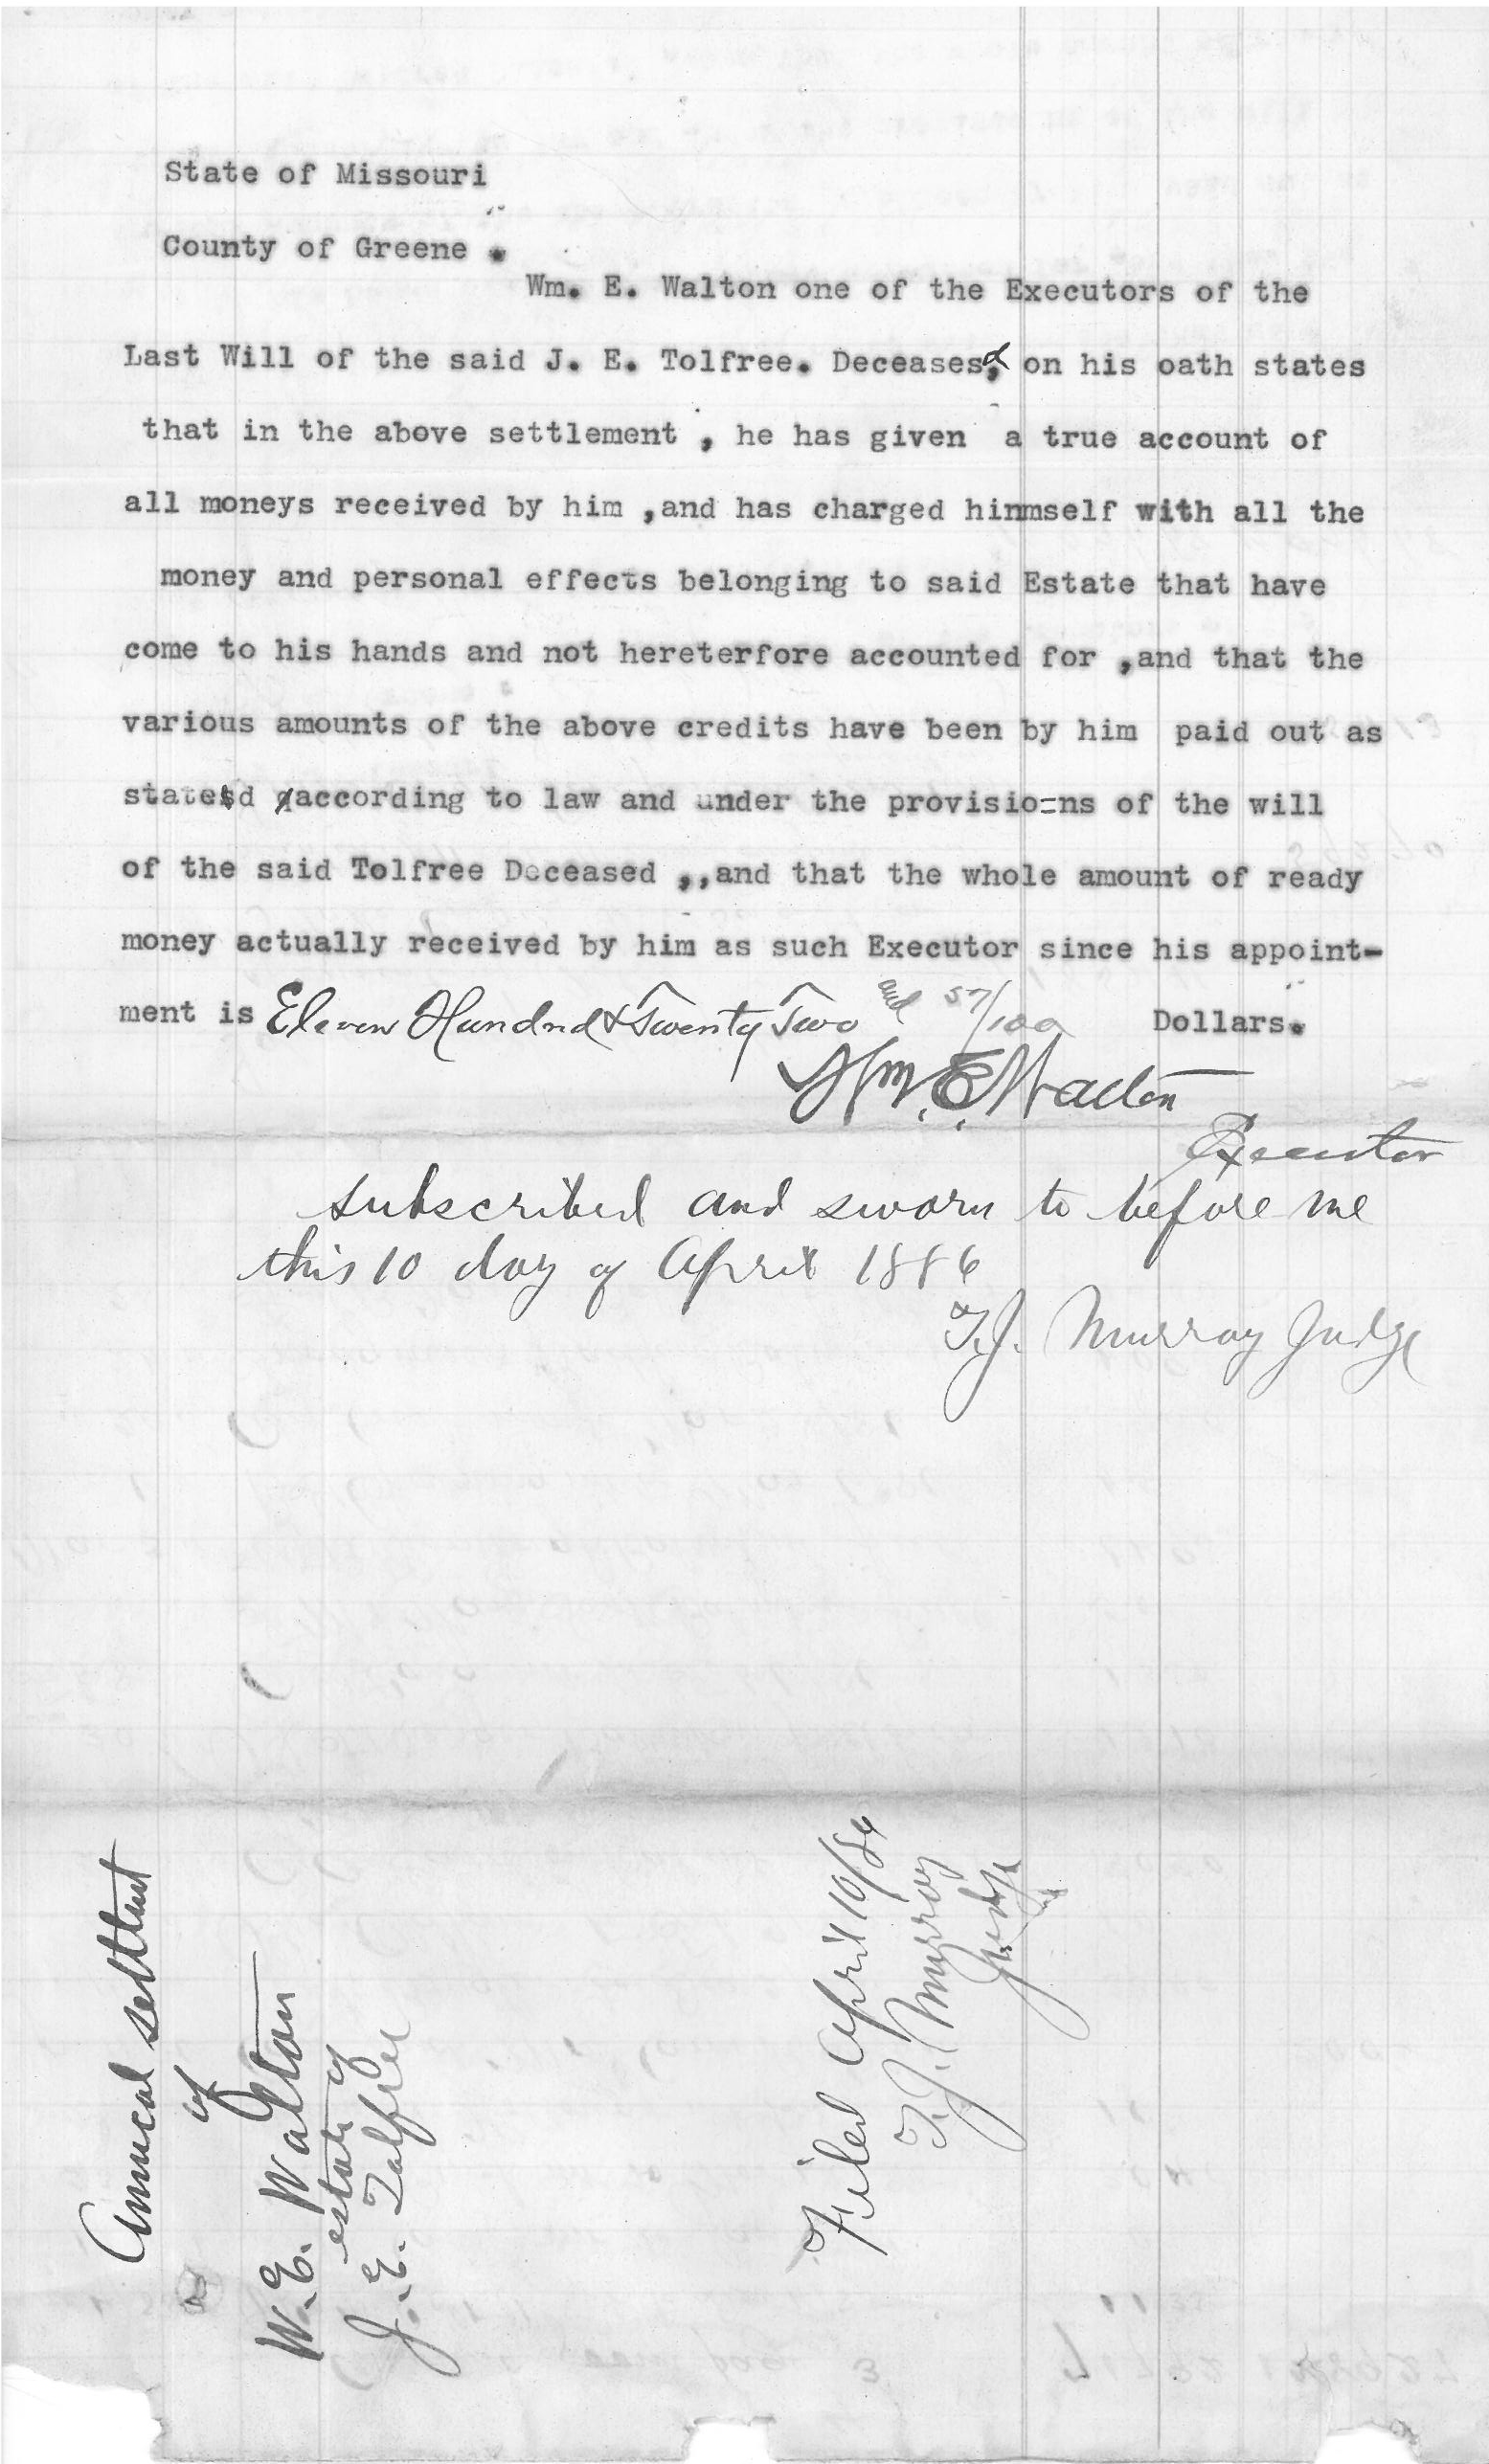 State of Missouri
County of Greene .
Wm. E. Walton one of the Executors of the
Last Will of the said J. E. Tolfree. Deceasesd, on his oath states
that in the above settlement , he has given a true account of
all moneys received by him ,and has charged hinmself with all the
money and personal effects belonging to said Estate that have
come to his hands and not hereterfore accounted for ,and that the
various amounts of the above credits have been by him paid out as
statesd according to law and under the provisio=ns of the will
of the said Tolfree Deceased ,,and that the whole amount of ready
money actually received by him as such Executor since his appoint-
ment is Eleven Hundred & Twenty Two and 57/100 Dollars.
Wm. E. Walton
Executor
subscribed and sworn to before me
this 10 day of April 1886
T.J. Murray Judge
Annual settlent
of
W.E. Walton
estate of
J.E. Tolfree
Filed April 10/86
T.J. Murray
Judge